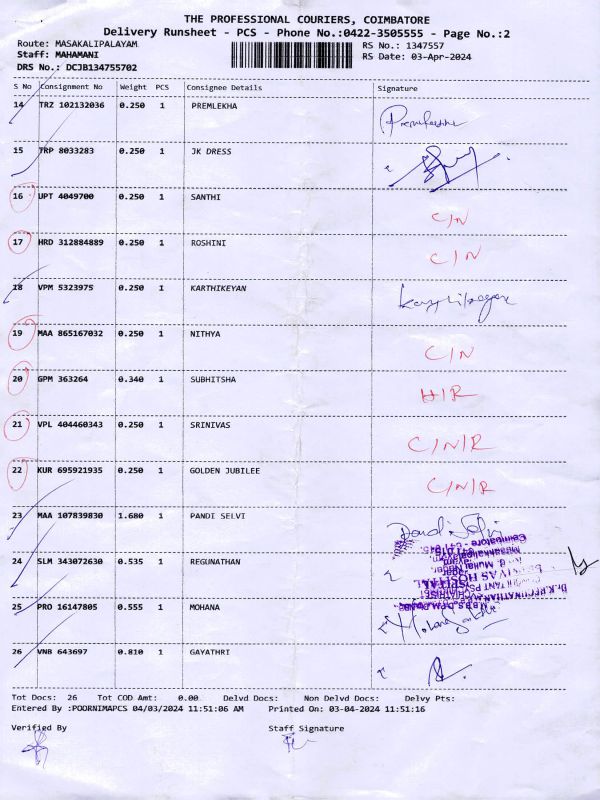 THE PROFESSIONAL COURIERS, COIMBATORE
Delivery Runsheet - PCS - Phone No.:0422-3505555 - Page No.:2
Route: MASAKALIPALAYAM RS No.: 1347557
Staff: MAHAMANI RS Date: 03-Apr-2024
DRS No.: DCJB134755702
S No Consignment No Weight PCS Consignee Details Signature
14 TRZ 102132036 0.250 1 PREMLEKHA
15 TRP 8033283 0.250 1 JK DRESS
16 UPT 4049700 0.250 1 SANTHI C/N
17 HRD 312884889 0.250 1 ROSHINI C/N
18 VPM 5323975 0.250 1 KARTHIKEYAN
19 MAA 865167032 0.250 1 NITHYA C/N
20 GPM 363264 0.340 1 SUBHITSHA H/R
21 VPL 404460343 0.250 1 SRINIVAS C/N/R
22 KUR 695921935 0.250 1 GOLDEN JUBILEE C/N/R
23 MAA 107839830 1.680 1 PANDI SELVI Pandi Selvi
24 SLM 343072630 0.535 1 REGUNATHAN
25 PRO 16147805 0.555 1 MOHANA
26 VNB 643697 0.810 1 GAYATHRI
Tot Docs: 26 Tot COD Amt: 0.00 Delvd Docs: Non Delvd Docs: Delvy Pts:
Entered By :POORNIMAPCS 04/03/2024 11:51:06 AM Printed On: 03-04-2024 11:51:16
Verified By Staff Signature